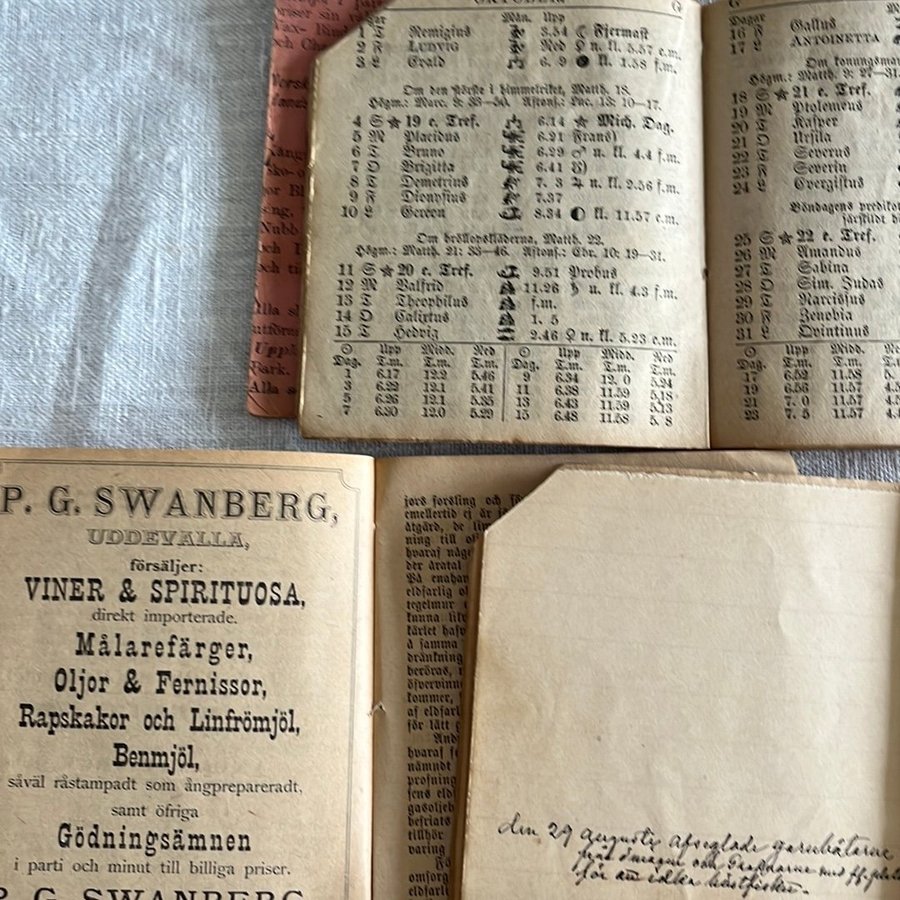 Dagar Mån. Upp
1 T Remigius 3.54 ☾ Fjermast
2 F LUDVIG Ned ♀ n. kl. 5.57 e.m.
3 L Evald 6. 9 ● kl. 1.58 f.m.
Om den störste i himmelriket, Matth. 18.
Högm.: Marc. 9: 33—50. Aftons.: Luc. 13: 10—17.
4 S ★ 19 e. Tref. 6.14 ★ Mich. Dag.
5 M Placidus 6.21 Frans)
6 T Bruno 6.29 ♂ n. kl. 4.4 f.m.
7 O Brigitta 6.41
8 T Demetrius 7. 3 ♃ n. kl. 2.56 f.m.
9 F Dionysius 7.37
10 L Gereon 8.34 ◐ kl. 11.57 e.m.
Om bröllopskläderna, Matth. 22.
Högm.: Matth. 21: 33—46. Aftons.: Ebr. 10: 19—31.
11 S ★ 20 e. Tref. 9.51 Probus
12 M Valfrid 11.26 ♄ n. kl. 4.3 f.m.
13 T Theophilus f.m.
14 O Calixtus 1. 5
15 T Hedvig 2.46 ♀ n. kl. 5.23 e.m.
☉ Upp Midd. Ned ☉ Upp Midd. Ned
Dag. T.m. T.m. T.m. Dag. T.m. T.m. T.m.
1 6.17 12.2 5.46 9 6.34 12. 0 5.24
3 6.22 12.1 5.41 11 6.38 11.59 5.18
5 6.26 12.1 5.35 13 6.43 11.59 5.13
7 6.30 12.0 5.29 15 6.48 11.58 5. 8
Dagar
16 F Gallus
17 L ANTOINETTA
Om konungsma
Högm.: Matth. 9: 27—31.
18 S ★ 21 e. Tref.
19 M Ptolemeus
20 T Kasper
21 O Ursila
22 T Severus
23 F Severin
24 L Evergistus
Böndagens predikot
särskildt
25 S ★ 22 e. Tref.
26 M Amandus
27 T Sabina
28 O Sim. Judas
29 T Narcissus
30 F Zenobia
31 L Qvintinus
☉ Upp Midd.
Dag. T.m. T.m.
17 6.52 11.58
19 6.56 11.57
21 7. 0 11.57
23 7. 5 11.57
P. G. SWANBERG,
UDDEVALLA,
försäljer:
VINER & SPIRITUOSA,
direkt importerade.
Målarefärger,
Oljor & Fernissor,
Rapskakor och Linfrömjöl,
Benmjöl,
såväl råstampadt som ångprepareradt,
samt öfriga
Gödningsämnen
i parti och minut till billiga priser.
P. G. SWANBERG
jors forsling och
emellertid ej är
åtgärd, de
ning till
hvaraf
der äratal
På enahan
eldfarlig
tegelmur
kunna
kärlet
å samma
dränkning
beröras,
öfvervinn
kommer,
af eldfarl
för lätt
hvaraf
nämndt
profning
sens eld
gasoljeb
befriats
tillhör
varing
omsorg
eldfarli
den 29 augusti afseglade garnbåtarne
för att idka höstfisken.